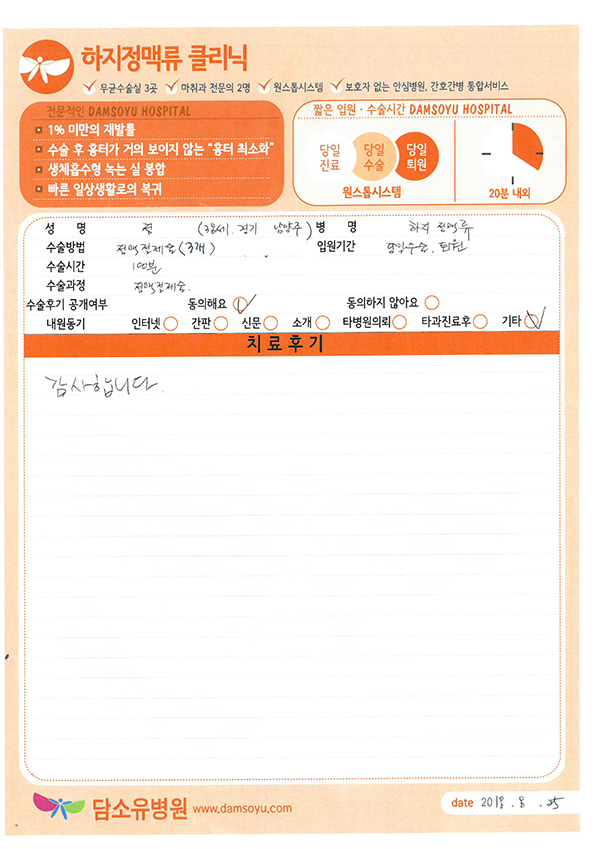 하지정맥류 클리닉
무균수술실 3곳 마취과 전문의 2명 원스톱시스템 보호자 없는 안심병원, 간호간병 통합서비스
전문적인 DAMSOYU HOSPITAL
1% 미만의 재발률
수술 후 흉터가 거의 보이지 않는 “흉터 최소화”
생체흡수형 녹는 실 봉합
빠른 일상생활로의 복귀
짧은 입원·수술시간 DAMSOYU HOSPITAL
당일 진료
당일 수술
당일 퇴원
원스톱시스템
20분 내외
성 명 정 (38세. 경기 남양주) 병 명 하지 정맥류
수술방법 정맥절제술 (3개) 입원기간 당일수술. 퇴원
수술시간 100분
수술과정 정맥절제술.
수술후기 공개여부 동의해요 동의하지 않아요
내원동기 인터넷 간판 신문 소개 타병원의뢰 타과진료후 기타
치료후기
감사합니다.
담소유병원 www.damsoyu.com
date 2018. 8. 25